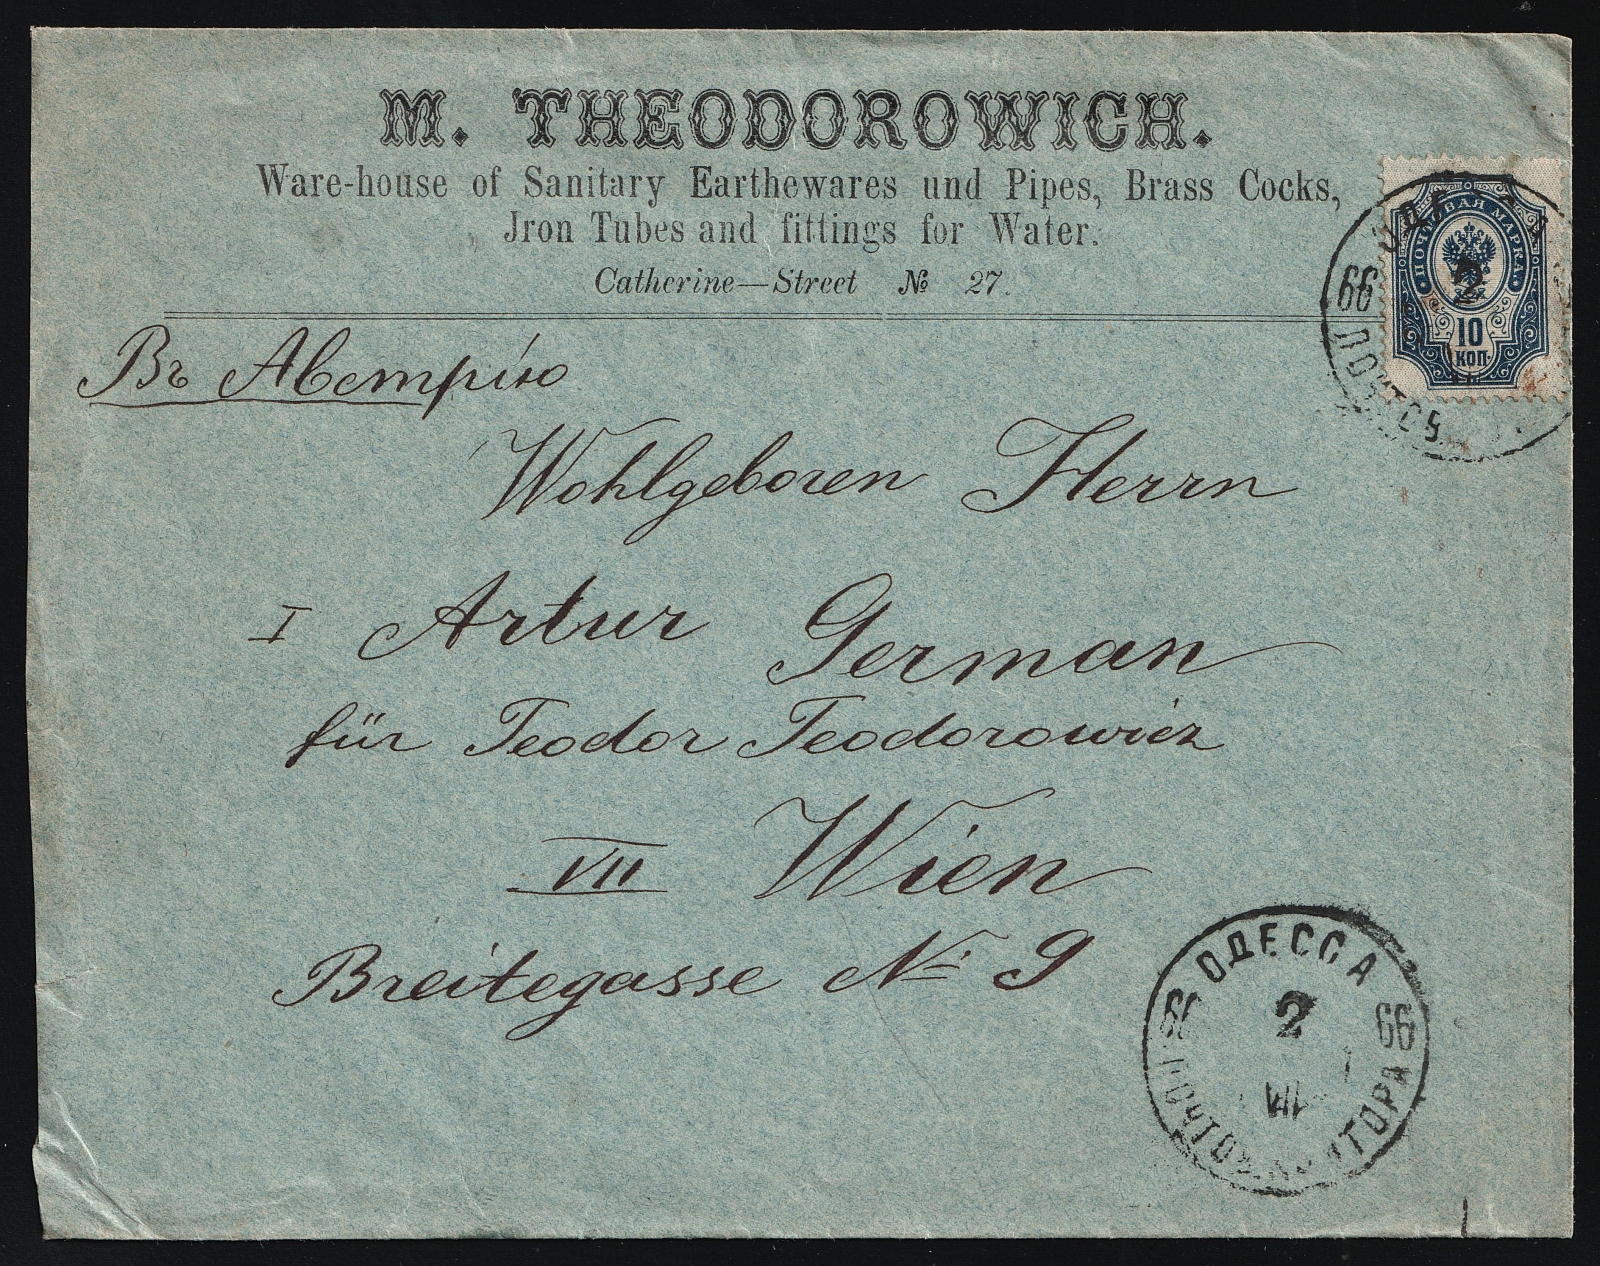 M. THEODOROWICH.
Ware-house of Sanitary Earthewares und Pipes, Brass Cocks,
Jron Tubes and fittings for Water.
Catherine—Street № 27.
ПОЧТОВАЯ МАРКА
10
КОП.
2
66
Въ Австрію
Wohlgeboren Herrn
I Artur German
für Teodor Teodorowicz
VII Wien
Breitegasse № 9
ОДЕССА
66 2 66
VII